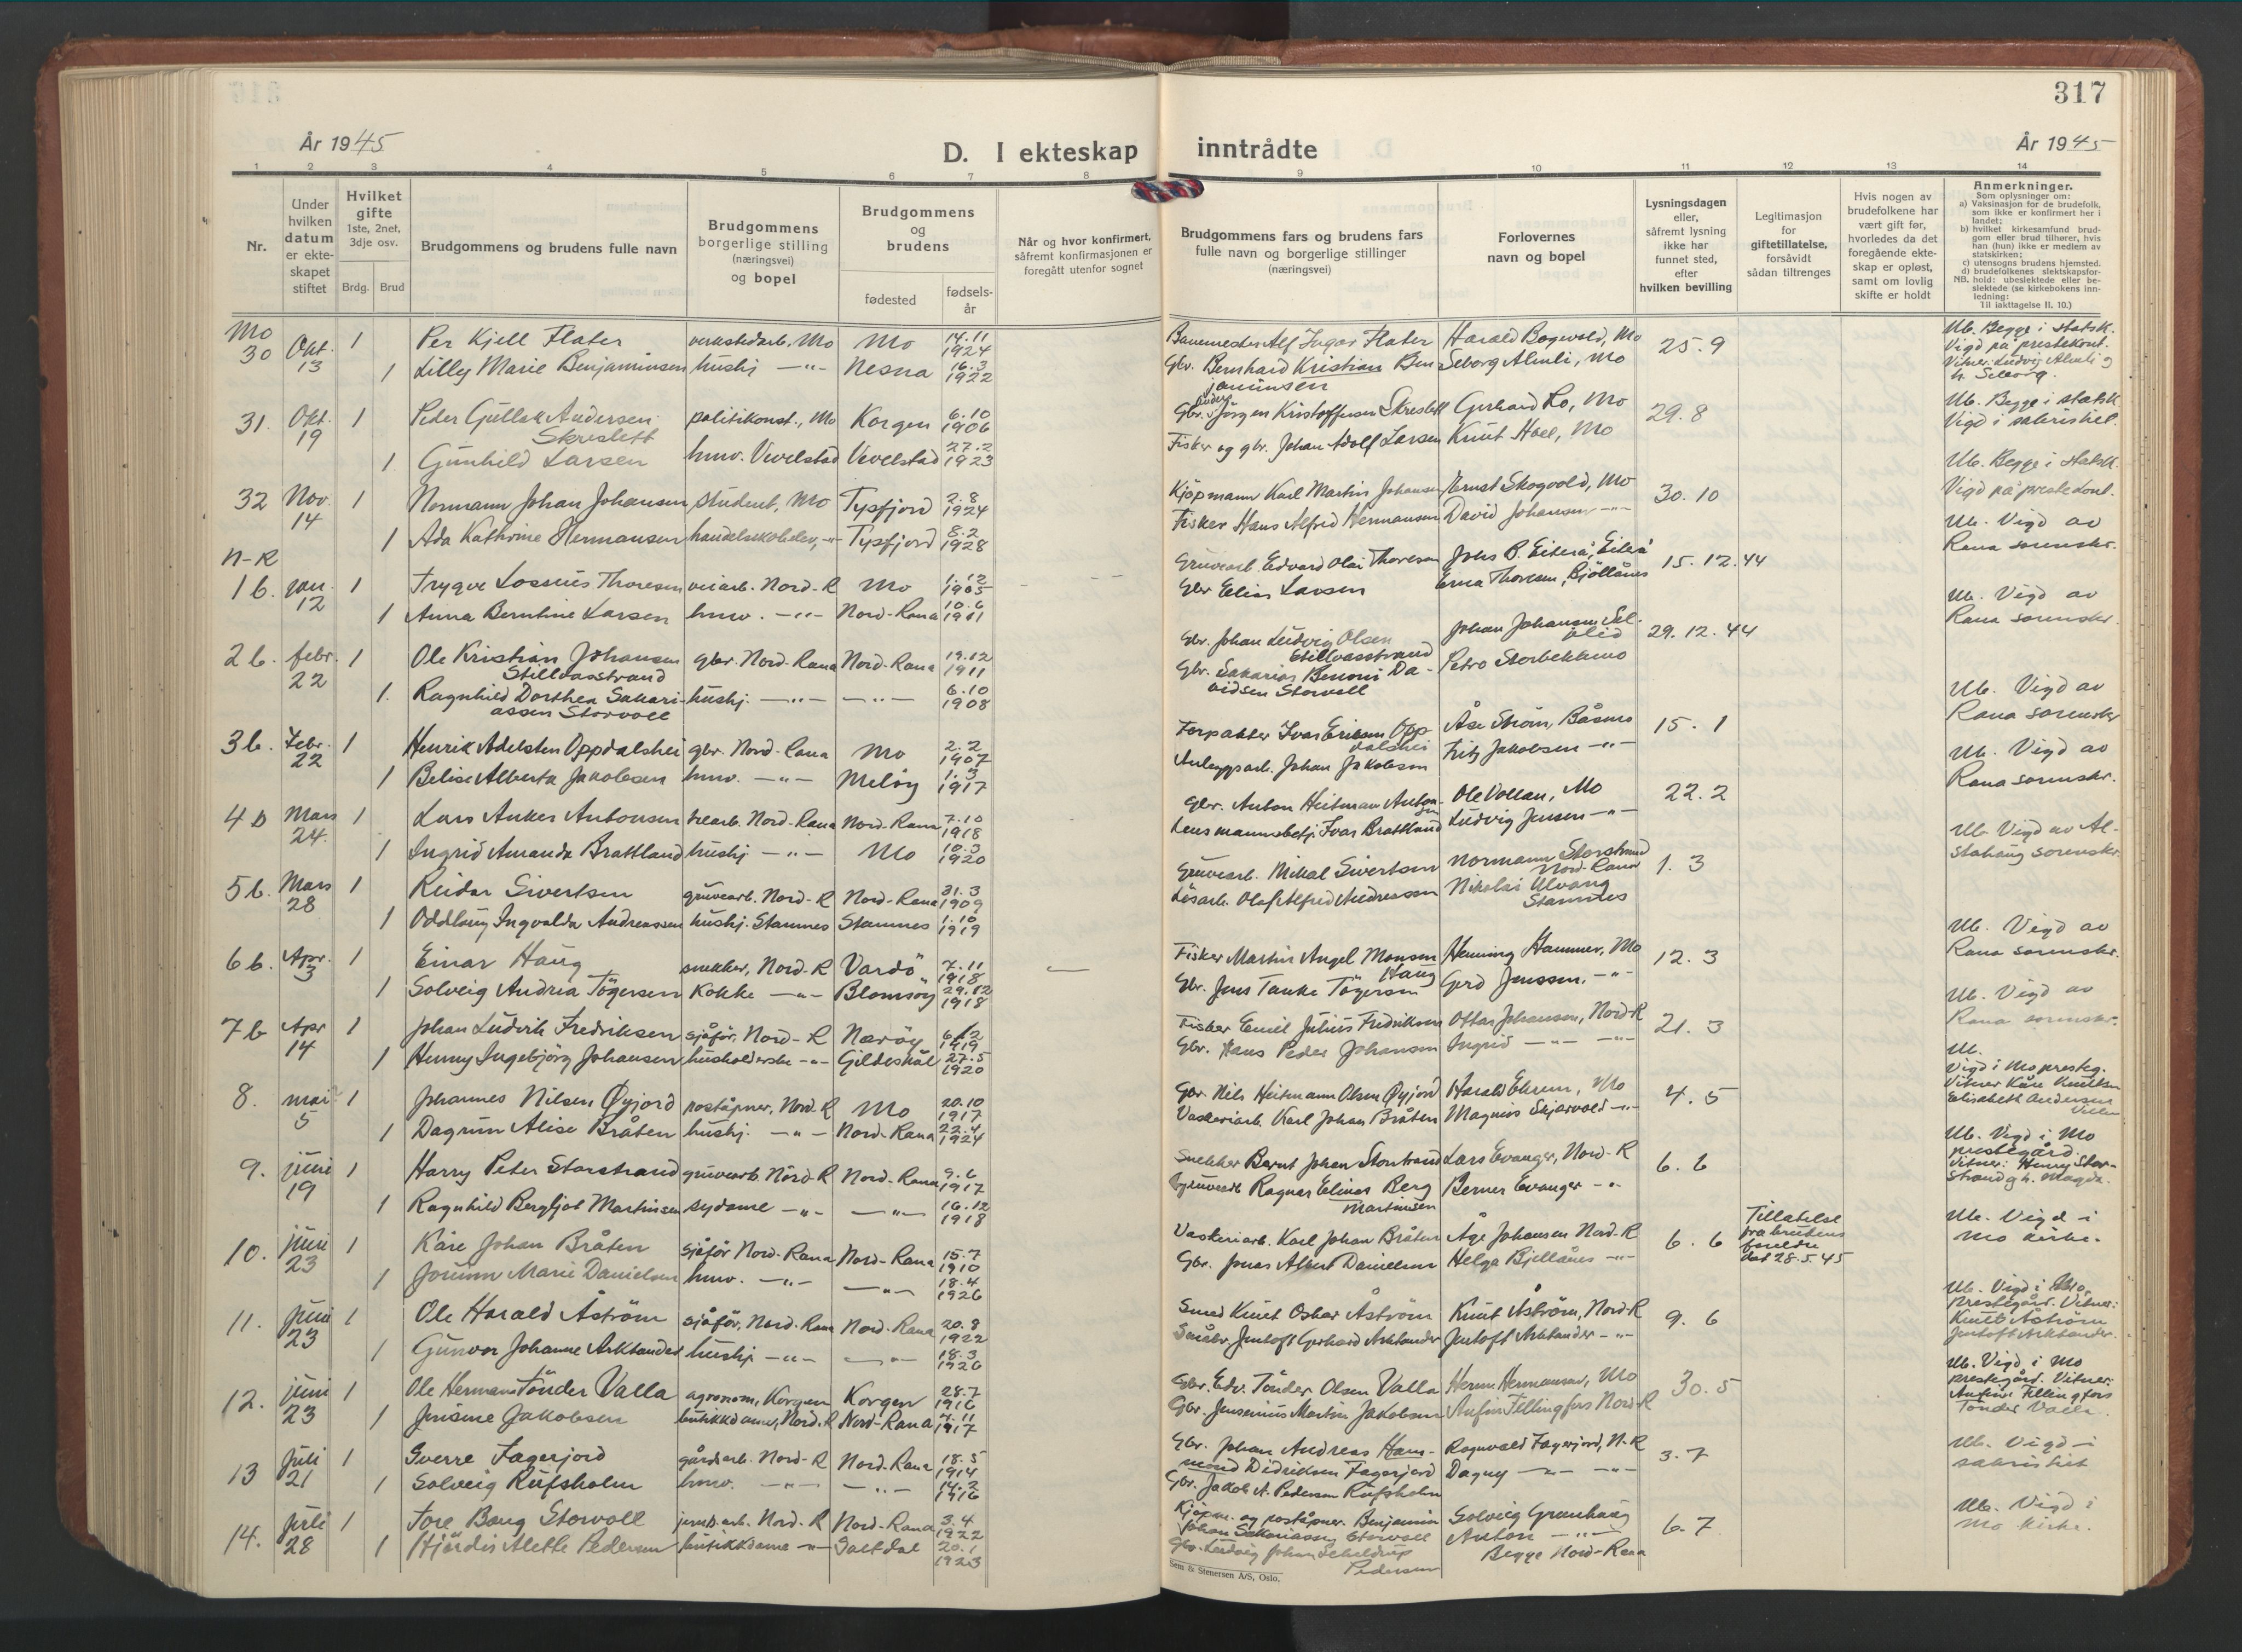 317
År 1945
D. I ekteskap inntrådte
År 1945
1 2 3 4 5 6 7 8 9 10 11 12 13 14
Nr.
Under hvilken datum er ekte-skapet stiftet
Hvilket gifte 1ste, 2net, 3dje osv.
Brdg. Brud
Brudgommens og brudens fulle navn
Brudgommens borgerlige stilling (næringsvei) og bopel
Brudgommens og brudens
fødested
fødsels-år
Når og hvor konfirmert, såfremt konfirmasjonen er foregått utenfor sognet
Brudgommens fars og brudens fars fulle navn og borgerlige stillinger (næringsvei)
Forlovernes navn og bopel
Lysningsdagen eller, såfremt lysning ikke har funnet sted, efter hvilken bevilling
Legitimasjon for giftetillatelse, forsåvidt sådan tiltrenges
Hvis nogen av brudefolkene har vært gift før, hvorledes da det foregående ekte-skap er opløst, samt om lovlig skifte er holdt
Anmerkninger.
Som oplysninger om:
a) Vaksinasjon for de brudefolk, som ikke er konfirmert her i landet;
b) hvilket kirkesamfund brud-gom eller brud tilhører, hvis han (hun) ikke er medlem av statskirken;
c) utensogns brudens hjemsted.
d) brudefolkenes slektskapsfor-hold: ubeslektede eller be-slektede (se kirkebokens inn-ledning:
NB. Til iakttagelse II. 10.)
Mo
30 Okt. 13 1 Per Kjell Flater verkstedarb., Mo Mo 14.11 1924 Banemester Alf Ingar Flater Harald Bogvold, Mo 25.9 Ub. Begge i statsk. Vigd på prestekont.
1 Lilly Marie Benjaminsen hushj. -"- Nesna 16.3 1922 Gbr. Bernhard Kristian Benjaminsen Seborg Almli, Mo Vitner: Ludvig Almli og h. Seborg.
31. Okt. 19 1 Peder Gullak Andersen Skreslett politikonst., Mo Korgen 6.10 1906 Gbr. Anders Jörgen Kristoffersen Skreslett Gerhard Lo, Mo 29.8 Ub. Begge i statsk. Vigd i sakristiet.
1 Gunhild Larsen hmv. Vevelstad Vevelstad 27.2 1923 Fisker og gbr. Johan Adolf Larsen Knut Hoel, Mo
32 Nov. 14 1 Normann Johan Johansen student, Mo Tysfjord 2.8 1924 Kjöpmann Karl Martin Johansen Ernst Skogvold, Mo 30.10 Ub. Begge i statsk. Vigd på prestekont.
1 Ada Kathrine Hermansen handelsskoleelev, -"- Tysfjord 8.2 1928 Fisker Hans Alfred Hermansen David Johansen -"-
N-R
1 b. jan. 12 1 Trygve Lossius Thoresen veiarb. Nord-R Mo 1.12 1905 Gruvearb. Edvard Olai Thoresen Johs B. Eiterå, Eiterå 15.12.44 Ub. Vigd av Rana sorenskr.
1 Anna Berntine Larsen hmv. -"- Nord-Rana 10.6 1911 Gbr Elias Larsen Erna Thoresen, Bjöllånes
2 b. febr. 22 1 Ole Kristian Johansen Stillvasstrand gbr. Nord-Rana Nord-Rana 19.12 1911 Gbr. Johan Ludvig Olsen Stillvasstrand Johan Johansen 29.12.44 Ub. Vigd av Rana sorenskr.
1. Ragnhild Dorthea Sakari-assen Storvoll hushj. -"- -"- 6.10 1908 Gbr. Sakarias Benoni Da-vidsen Storvoll Petro Storbekkmo
3 b. Febr. 22 1 Henrik Adelsten Oppdalshei gbr. Nord-Rana Mo 2.2 1907 Forpakter Ivar Eriksen Opp-dalshei Åse Ström, Båsmo 15.1 Ub. Vigd av Rana sorenskr
1 Belise Alberta Jakobsen hmv. -"- Melöy 1.3 1917 Anleggsarb. Johan Jakobsen Fritz Jakobsen -"-
4 b Mars 24. 1 Lars Anker Antonsen Nord-Rana Nord-Rana 7.10 1918 Gbr. Anton Heitman Anton-sen Ole Vollan, Mo 22.2 Ub. Vigd av Rana sorenskr.
1 Ingrid Amanda Brattland hushj. -"- Mo 10.3 1920 Lensmannsbetj. Ivar Brattland Ludvig Jensen -"-
5 b. Mars 28 1 Reidar Sivertsen gruvearb. Nord-R Nord-Rana 31.3 1909 Gruvearb. Mikal Sivertsen Normann Storstrand Nord-Rana 1.3 Ub. Vigd av Al-stahaug sorenskr.
1 Oddlaug Ingvalda Andreassen hushj. Stamnes Stamnes 1.10 1919 Lösarb. Olaf Alfred Andreassen Nikolai Ulvang Stamnes
6 b. Apr. 3 1 Einar Haug snekker, Nord-R Vardö 7.11 1918 Fisker Martin Angel Monsen Haug Henning Hammer, Mo 12.3 Ub. Vigd av Rana sorenskr.
1 Solveig Andrea Tögersen Kokke -"- Blomsöy 29.12 1918 Gbr. Jens Tanke Tögersen Gerd Jenssen, -"-
7 b Apr 14 1 Johan Ludvik Fredriksen sjåför, Nord-R Næröy 1919 Fisker Emil Julius Fredriksen Ottar Johansen, Nord-R 21.3 Ub. Vigd av Rana sorenskr.
1 Henny Ingebjörg Johansen husholderske -"- Gildeskål 27.5 1920 Gbr. Hans Peder Johansen Ingrid -"- -"-
8. mai 5 1 Johannes Nilsen Øyjord poståpner, Nord.R Mo 20.10 1917 Gbr. Nils Heitmann Olsen Øyjord Harald Ehrem, Mo 4.5 Ub. Vigd i Mo presteg. Vitner Kåre Knutsen Elisabeth Andersen
1 Dagrun Alise Bråten hushj. -"- Nord-Rana 22.4 1924 Vaskeriarb. Karl Johan Bråten Magnus Skjærvold -"-
9. juni 19 1 Harry Peter Storstrand gruvearb. Nord-R Nord-Rana 9.6 1917 Snekker Bernt Johan Storstrand Lars Evanger, Nord-R 6.6 Ub. Vigd i Mo prestegård. Vitner: Henry Stor-strand og h. Magda.
1 Ragnhild Bergljot Martinsen sydame -"- -"- 16.12 1918 Gruvearb Ragnar Elinor Berg Martinsen Berner Evanger -"-
10. juni 23 1 Kåre Johan Bråten sjåför Nord-Rana Nord-Rana 15.7 1910 Vaskeriarb. Karl Johan Bråten Åge Johansen Nord-R 6.6 Tillatelse fra brudens foreldre dat 28.5.45 Ub. Vigd i Mo kirke.
1 Jorunn Marie Danielsen hmv. -"- -"- 18.4 1926 Gbr. Jonas Albert Danielsen Helga Bjellånes -"-
11. Juni 23 1 Ole Harald Åström sjåför, Nord-Rana Nord-Rana 20.8 1922 Smed Knut Oskar Åström Knut Åström, Nord-R 9.6 Ub. Vigd i Mo prestegård. Vitner: Knut Åström Jentoft Arktander.
1 Gunvor Johanne Arktander hushj. -"- -"- 18.3 1926 Småbr. Jentoft Gerhard Arktander Jentoft Arktander -"-
12. juni 23 1 Ole Hermann Tönder Valla agronom, Korgen Korgen 28.7 1916 Gbr. Edv. Tönder Olsen Valla Herm. Hermansen, Mo 30.5 Ub. Vigd i Mo prestegård. Vitner: Anfin Fellingfors Tönder Valla.
1 Jensine Jakobsen butikkdame, Nord.R Nord-Rana 7.11 1917 Gbr. Jensenius Martin Jakobsen Anfin Fellingfors Nord-R
13 Juli 21 1 Sverre Fagerjord gårdsarb. Nord-R Nord-Rana 18.5 1914 Gbr. Johan Andreas Ham-mond Didriksen Fagerjord Ragnvald Fagerjord, N-R 3.7 Ub. Vigd i sakristiet
1 Solveig Rufsholm hmv. -"- -"- 14.2 1916 Gbr. Jakob A. Pedersen Rufsholm Dagny -"- -"-
14. Juli 28 1 Tore Baug Storvoll jernb.arb. Nord-R Nord-Rana 3.4 1922 Kjöpm. og poståpner. Benjamin Johan Sakariassen Storvoll Solveig Grønhaug 6.7 Ub. Vigd i Mo kirke.
1 Hjördis Alette Pedersen butikkdame -"- Saltdal 20.1 1923 Gbr. Ludvig Johan Scheldrup Pedersen Anton -"- Begge Nord-Rana
Sem & Stenersen A/S, Oslo.